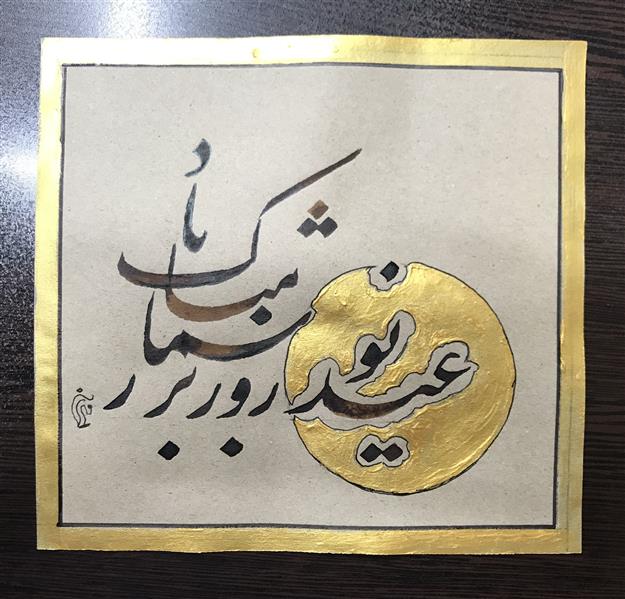 عید نوروز بر شما مبارک باد